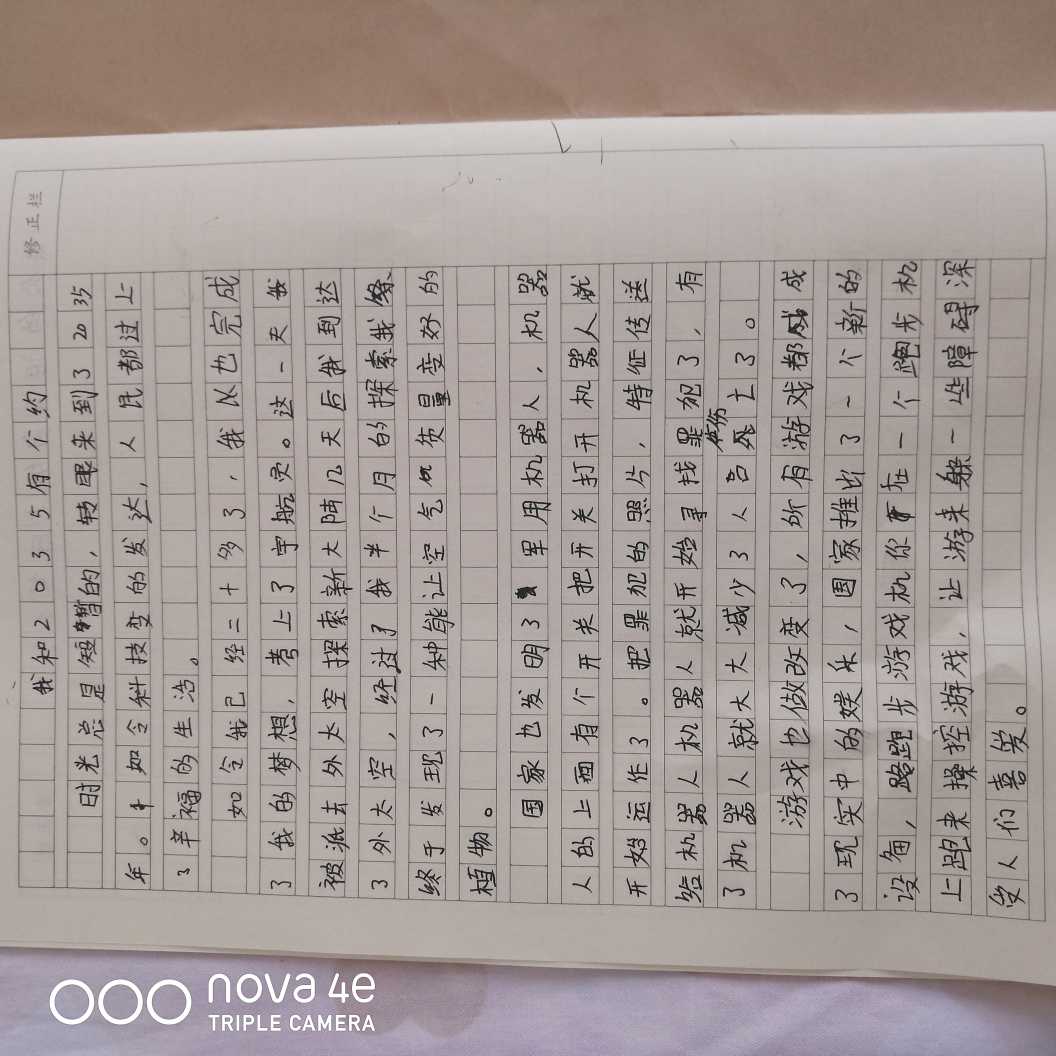 修正栏
我和2035有个约
时光总是短暂的，转眼来到了2035
年。如今科技变的发达，人民都过上
了辛福的生活。
如今我已经二十多了，我以也完成
了我的梦想，考上了宇航员。这一天我
被派去外太空探索新大陆几天后我到达
了外太空，经过了我半个月的探索我
终于发现了一种能让空气质量变好的
植物。
国家也发明了军用机器人，机器
人的上面有个开关把开关打开机器人就
开始运作了。把罪犯的照片，特征传送
给机器人机器人就开始寻找罪犯了，有
了机器人就大大减少了人员伤死亡了。
游戏也做改变了，所有游戏都成
了现实中的娱乐，国家推出了一个新的
设备，跑步游戏机你在一个跑步机
上跑来操控游戏，让游来躲一些障碍深
受人们喜爱。
nova 4e
TRIPLE CAMERA